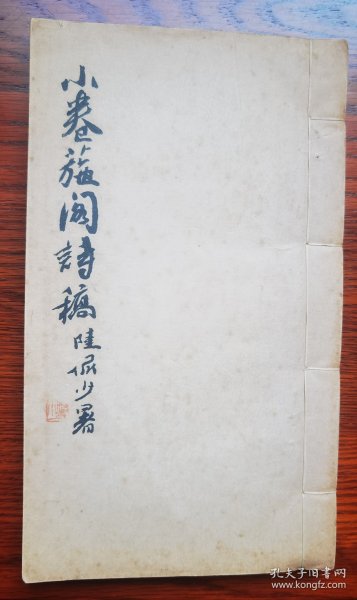 小卷葹阁詩稿
陸俨少署
孔夫子旧书网
www.kongfz.com